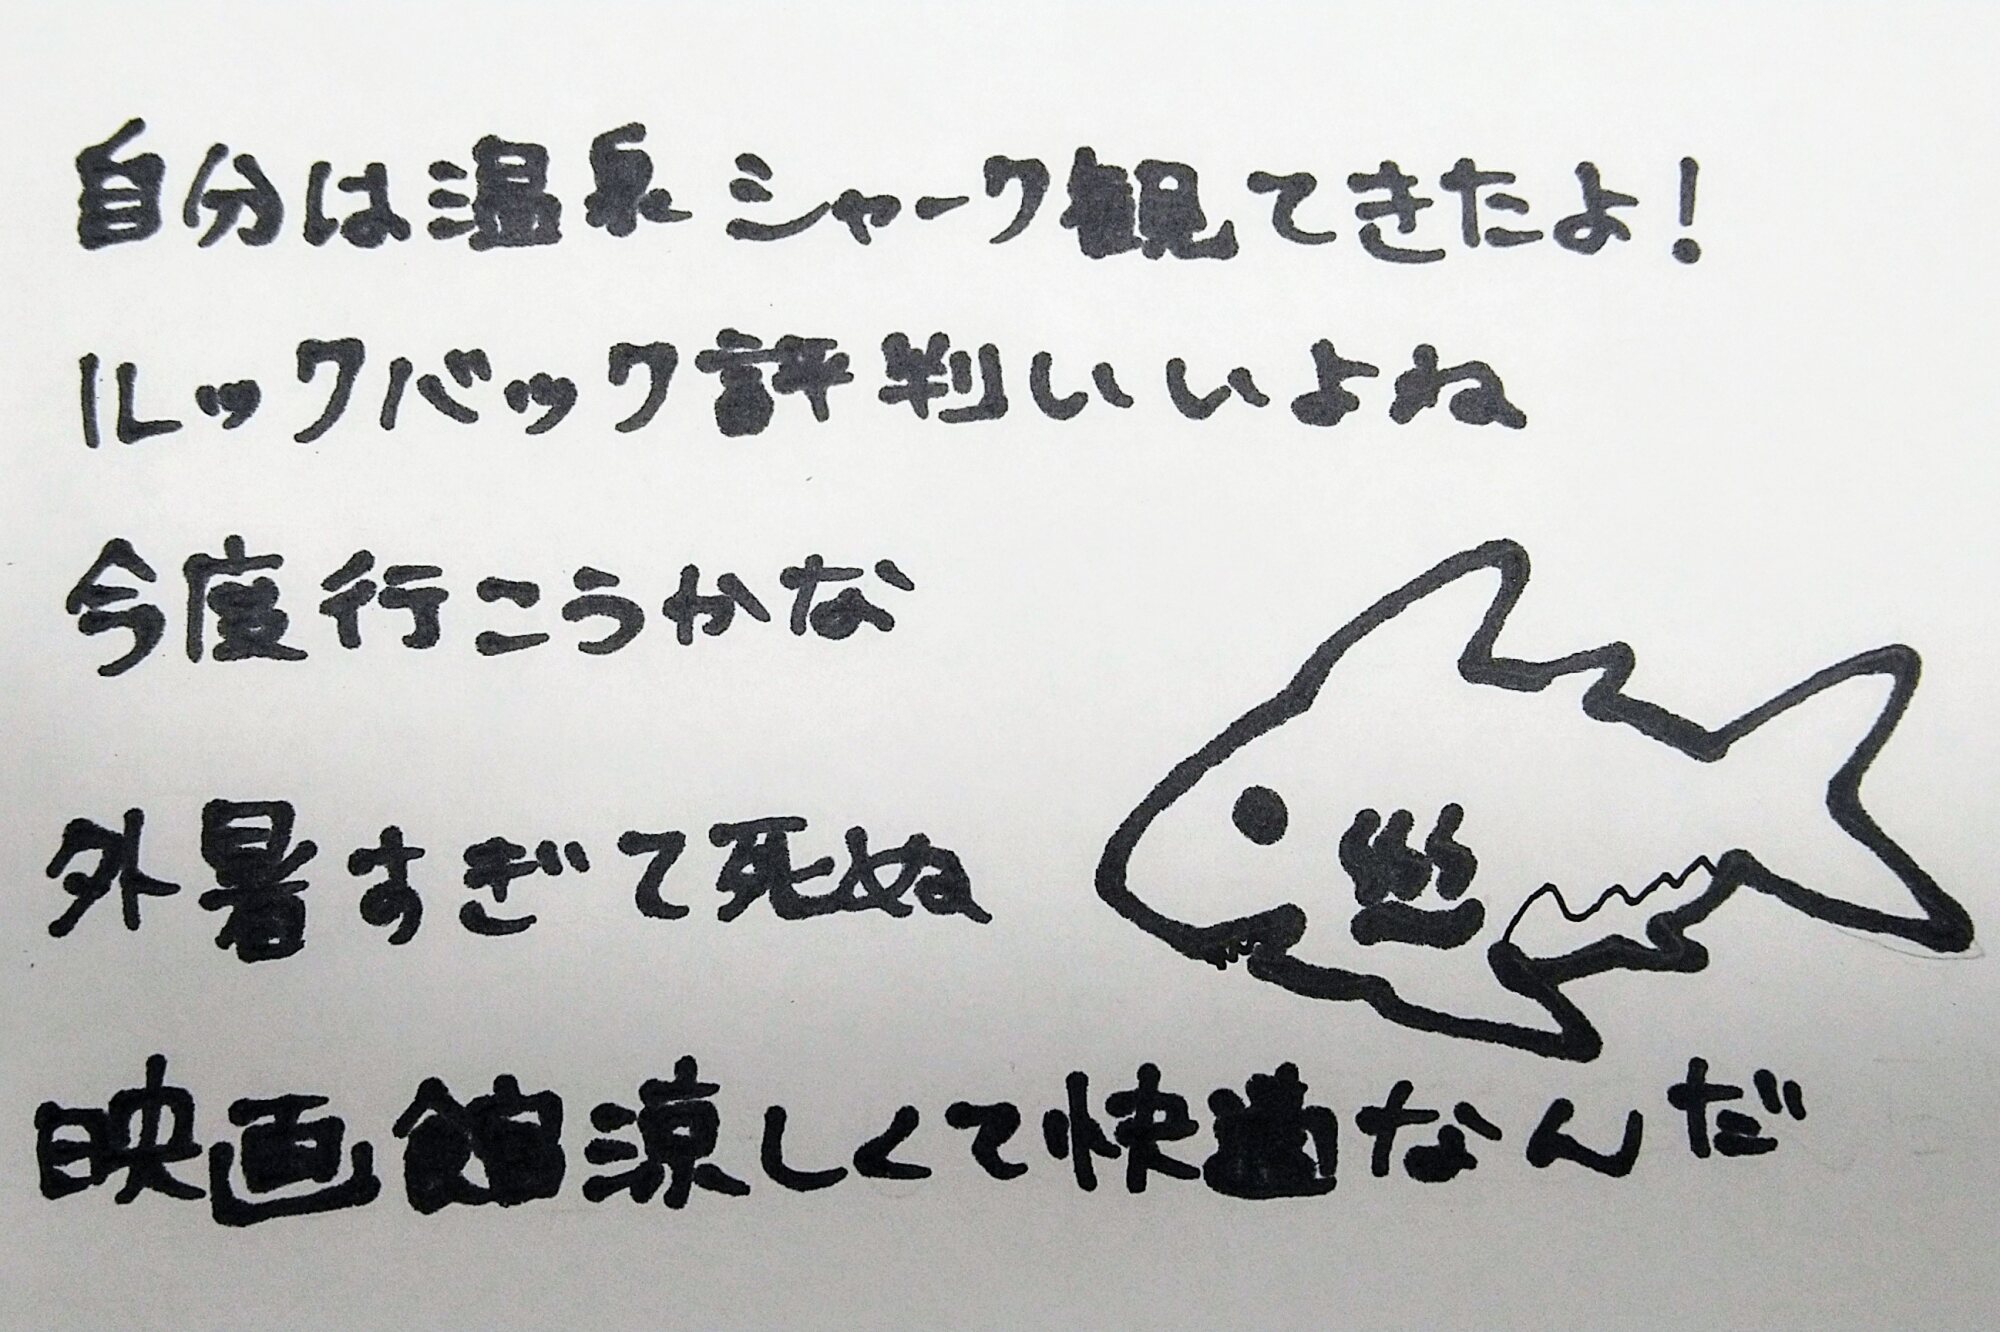 自分は温泉シャーク観てきたよ!
ルックバック評判いいよね
今度行こうかな
外暑すぎて死ぬ
映画館涼しくて快適なんだ